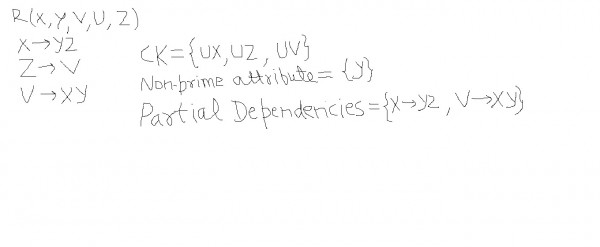 R(X,Y,V,U,Z)
X→YZ
Z→V
V→XY
CK={UX,UZ,UV}
Non-prime attribute={y}
Partial Dependencies={X→YZ,V→XY}